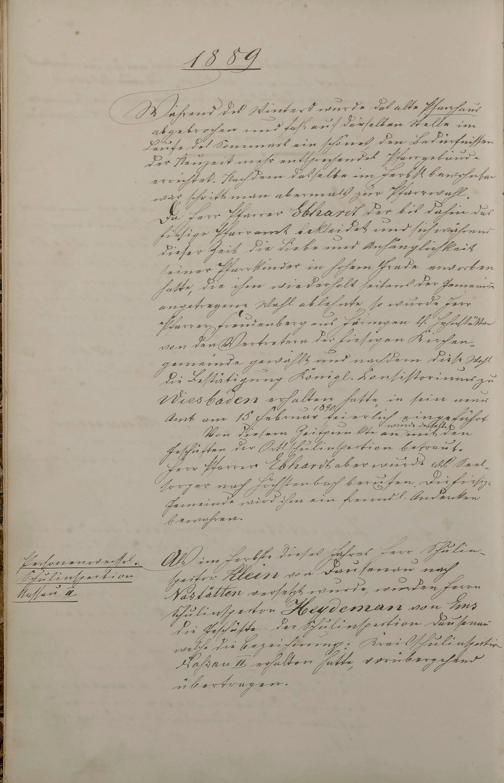 1889
Während des Winters wurde das alte Pfarrhaus
abgebrochen und sodann auf derselben Stelle im
Laufe des Sommers ein schönes, den Bedürfnissen
der Neuzeit mehr entsprechendes Pfarrgebäude
errichtet. Nachdem dasselbe im Herbst bewohnbar
war, schritt man abermals zur Pfarrwahl.
Da Herr Pfarrer Ebhardt, der bis dahin das
hiesige Pfarramt bekleidet und sich während
dieser Zeit die Liebe und Anhänglichkeit
seiner Pfarrkinder in hohem Grade erworben
hatte, die ihm wiederholt seitens der Gemeinde
angetragene Wahl ablehnte, so wurde Herr
Pfarrer Freudenberg aus
von den Vertretern der hiesigen Kirchen-
gemeinde gewählt und nachdem diese Wahl
die Bestätigung Königl. Konsistoriums zu
Wiesbaden erhalten hatte, in sein neues
Amt am 15 Februar 1890 feierlich eingeführt.
Von diesem Zeitpunkte an wurde derselbe mit den
Geschäften der Ortsschulinspektion betraut.
Herr Pfarrer Ebhardt aber wurde als Seel-
sorger nach Höchstenbach berufen. Die hiesige
Gemeinde wird ihm ein freundl. Andenken
bewahren.
Personenwechsel.
Schulinspektion
Nassau II.
Als im Herbste dieses Jahres Herr Schulin-
spektor Klein von Dausenau nach
Nastätten versetzt wurde, wurden Herrn
Schulinspektor Heydeman von Ems
die Geschäfte der Schulinspektion Dausenau
welche die Bezeichnung: Kreisschulinspektion
Nassau II. erhalten hatte, vorübergehend
übertragen.